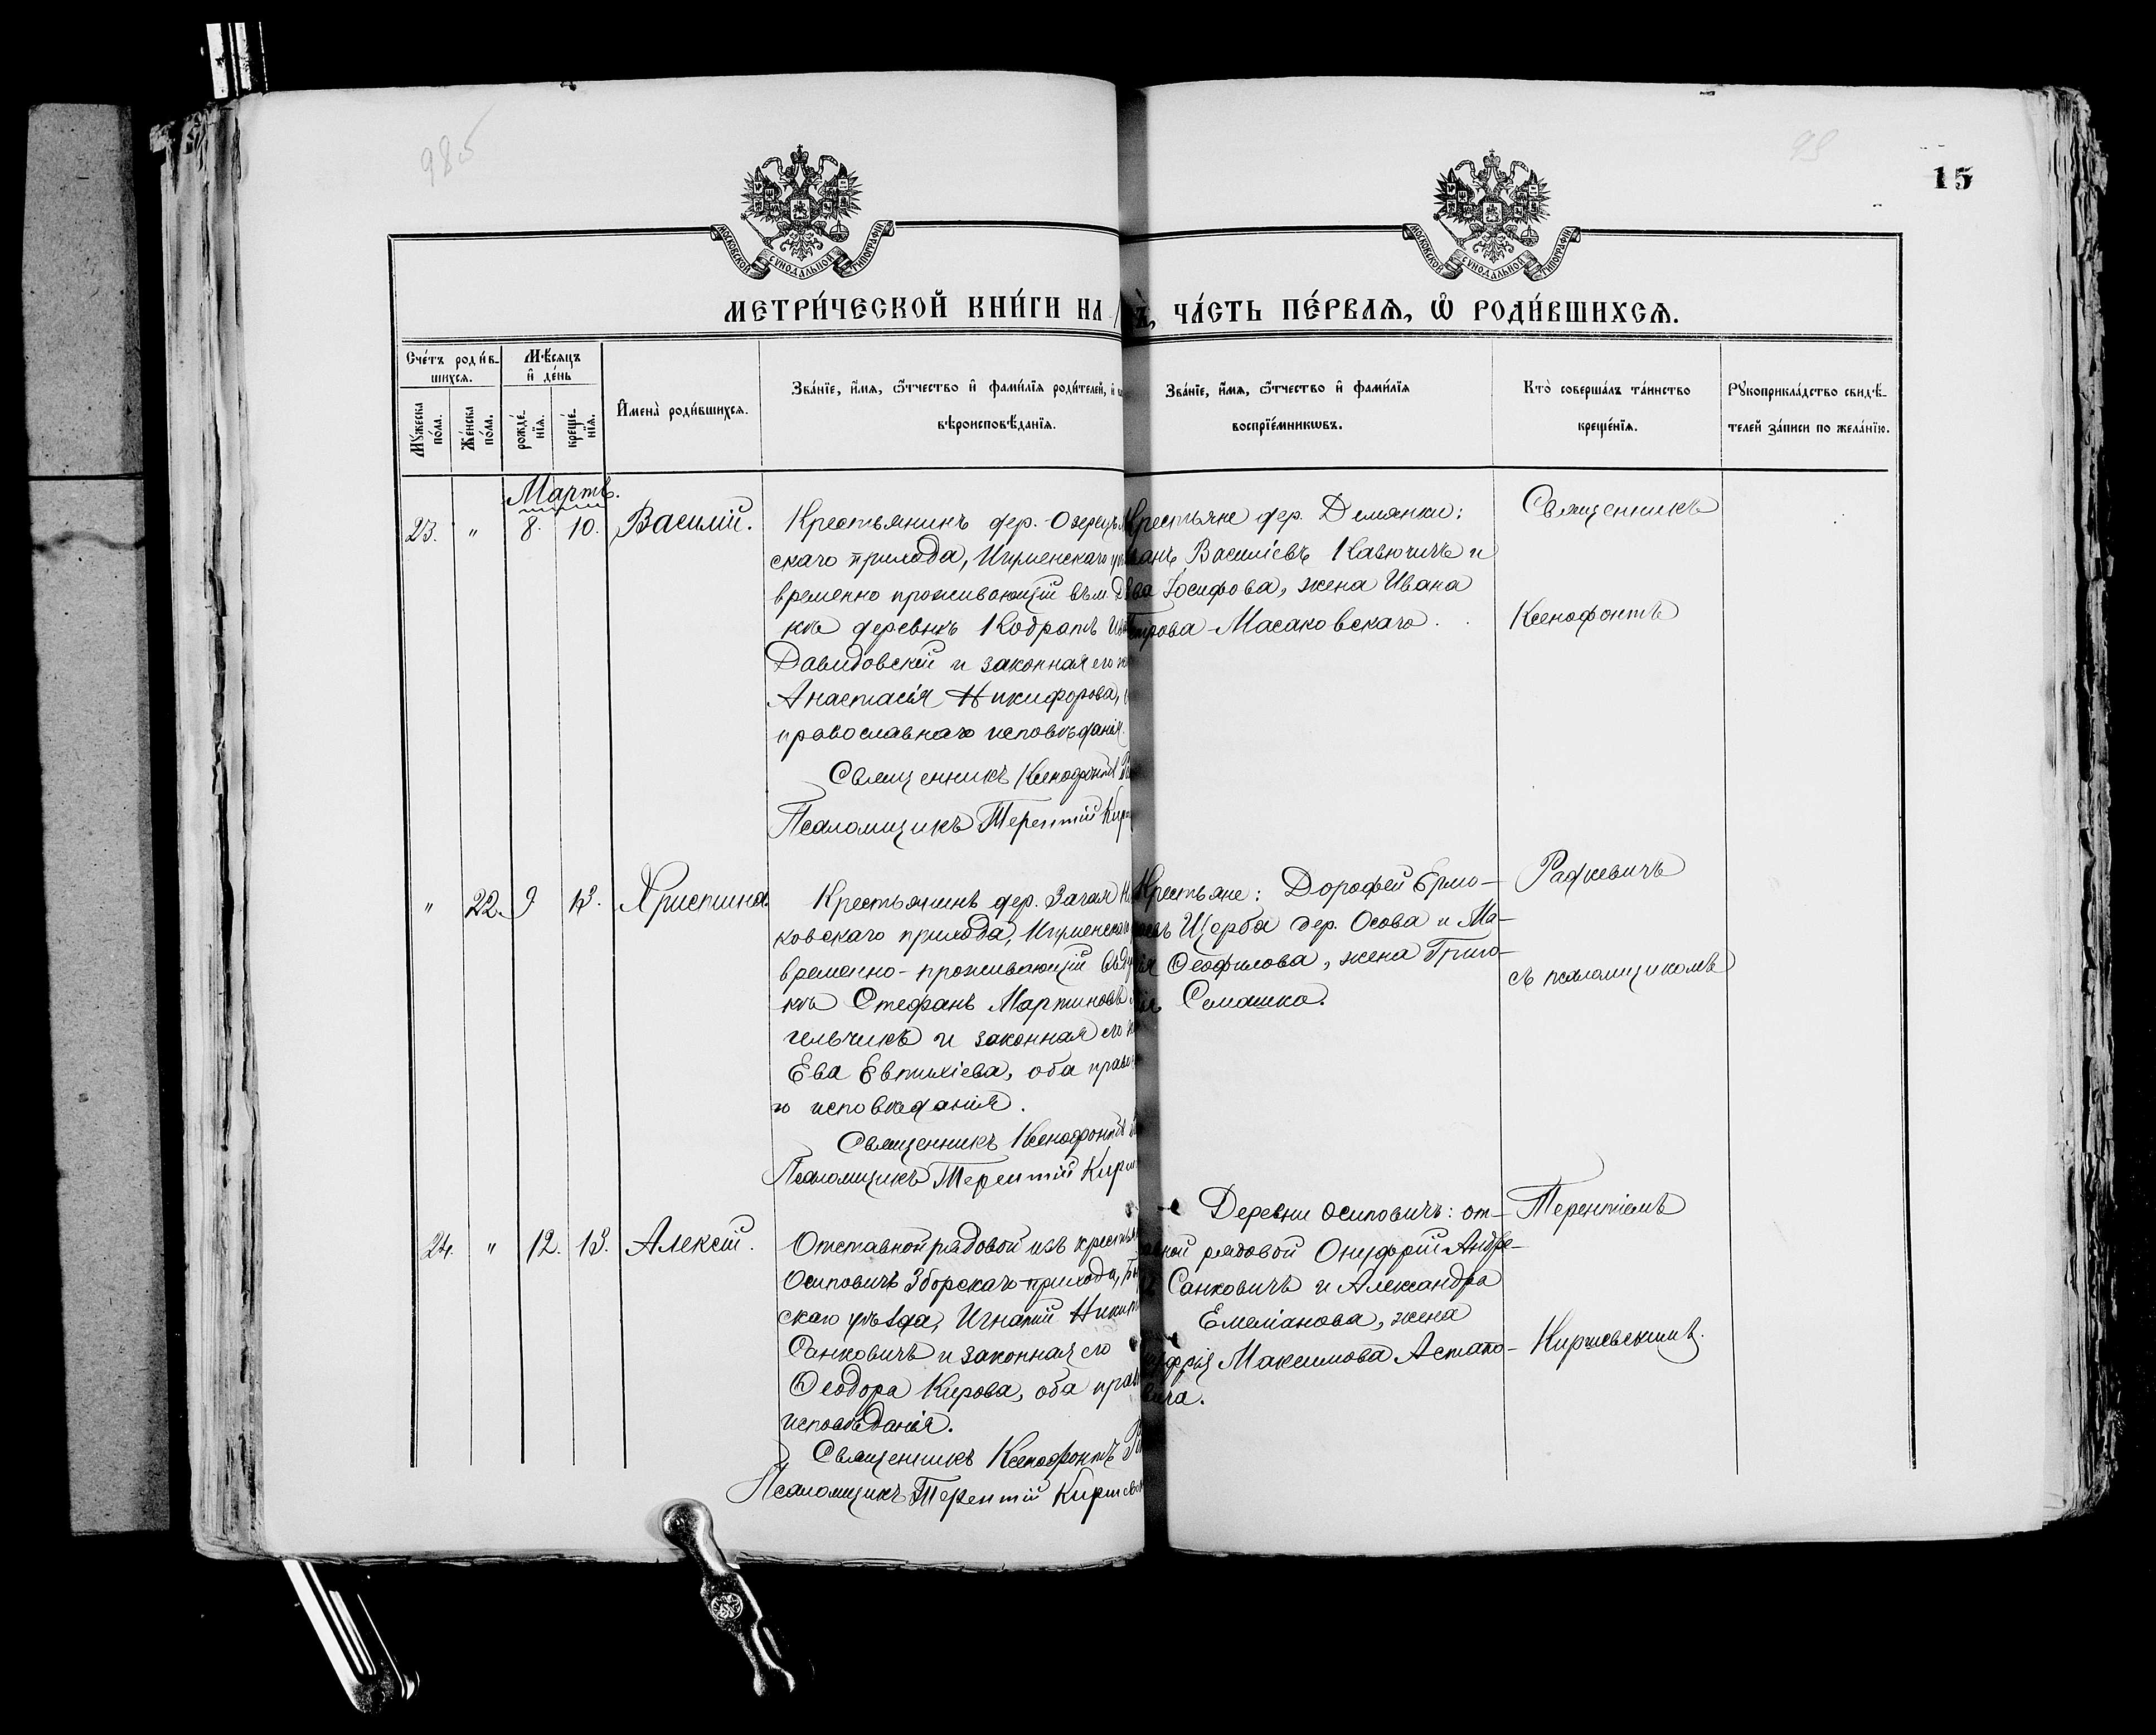 985
99
15
МОСКОВСКОЙ СѴНОДАЛЬНОЙ ТИПОГРАФІИ
МОСКОВСКОЙ СѴНОДАЛЬНОЙ ТИПОГРАФІИ
МЕТРИ́ЧЕСКОЙ КНИ́ГИ НА
ЧА́СТЬ ПЕ́РВАѦ, Ѽ РОДИ́ВШИХСѦ.
Сче́тъ роди́в-
шихсѧ.
Мѣ́сѧцъ
и҆ де́нь
Мꙋ́жеска
по́ла.
Же́нска
по́ла.
рожде́-
нїѧ.
креще́-
нїѧ.
И҆мена̀ роди́вшихсѧ.
Зва́нїе, и҆́мѧ, ѻ҆́тчество и҆ фами́лїѧ роди́телей, и҆
вѣроисповѣ́данїѧ.
Зва́нїе, и҆́мѧ, ѻ҆́тчество и҆ фами́лїѧ
воспрїе́мникѡвъ.
Кто̀ соверша́лъ та́инство
креще́нїѧ.
Рꙋкоприкла́дство свидѣ́-
телей за́писи по жела́нїю.
Мартъ.
23. " 8. 10. Василій.
Крестьянинъ дер. Озерецъ
скаго прихода, Игуменскаго
временно проживающій въ
деревнѣ Кодратъ
Давидовскій и законная его
Анастасія Никифорова,
православнаго исповѣданія.
Священникъ Ксенофонтъ
Псаломщикъ Терентій
Крестьяне дер. Демянки:
Василіевъ Кавючичъ и
Іосифова, жена Ивана
Масаковскаго.
Священникъ
Ксенофонтъ
" 22. 9 13. Христина.
Крестьянинъ дер. Загая
ковскаго прихода, Игуменскаго
временно-проживающій
Стефанъ Мартиновъ
гельчикъ и законная его
Ева Евтихіева, оба
го исповѣданія.
Священникъ Ксенофонтъ
Псаломщикъ Терентій
Крестьяне: Дорофей Ермо-
Щерба дер. Осова и Ма-
Ѳеофилова, жена Григо-
Семашко.
Радкевичъ
съ псаломщикомъ
24. " 12. 13. Алексій.
Отставной рядовой изъ
Осиповичъ Зборскаго прихода,
скаго уѣзда, Игнатій
Санковичъ и законная его
Ѳеодора Кирова, оба
исповѣданія.
Священникъ Ксенофонтъ
Псаломщикъ Терентій
Деревни Осиповичъ: от-
рядовой Онуфрій Андре-
Санковичъ и Александра
Емеліанова, жена
Максимова Астапо-
вича.
Терентіемъ
Киршевскимъ.